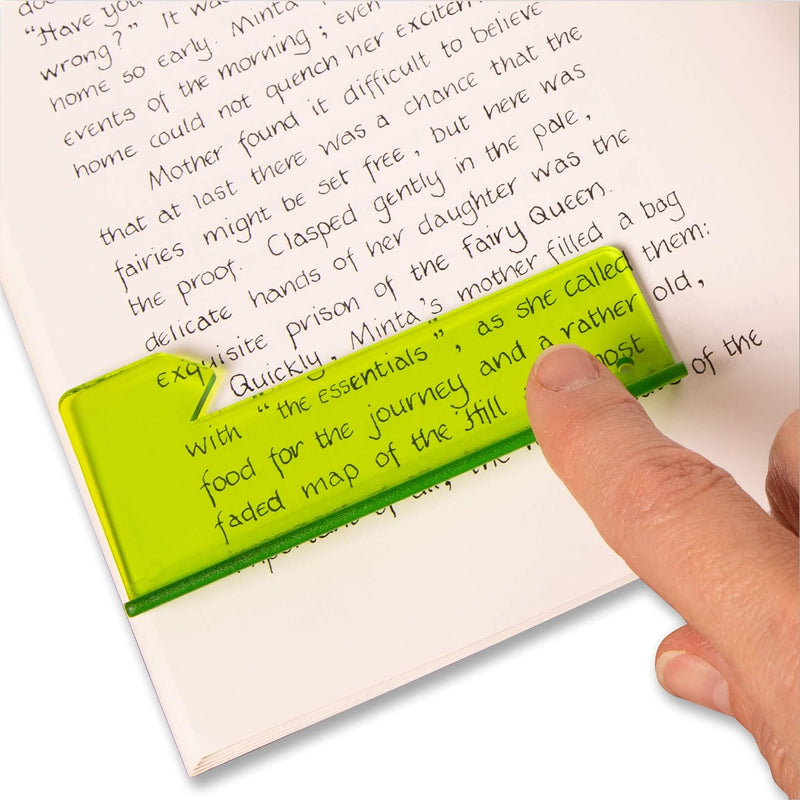 "Have you
wrong?" It was
home so early. Minta
events of the morning; even
home could not quench her excitem
Mother found it difficult to believe
that at last there was a chance that the
fairies might be set free, but here was
the proof. Clasped gently in the pale,
delicate hands of her daughter was the
exquisite prison of the Fairy Queen.
Quickly, Minta's mother filled a bag
with "the essentials", as she called them:
food for the journey and a rather old,
faded map of the Hill of the